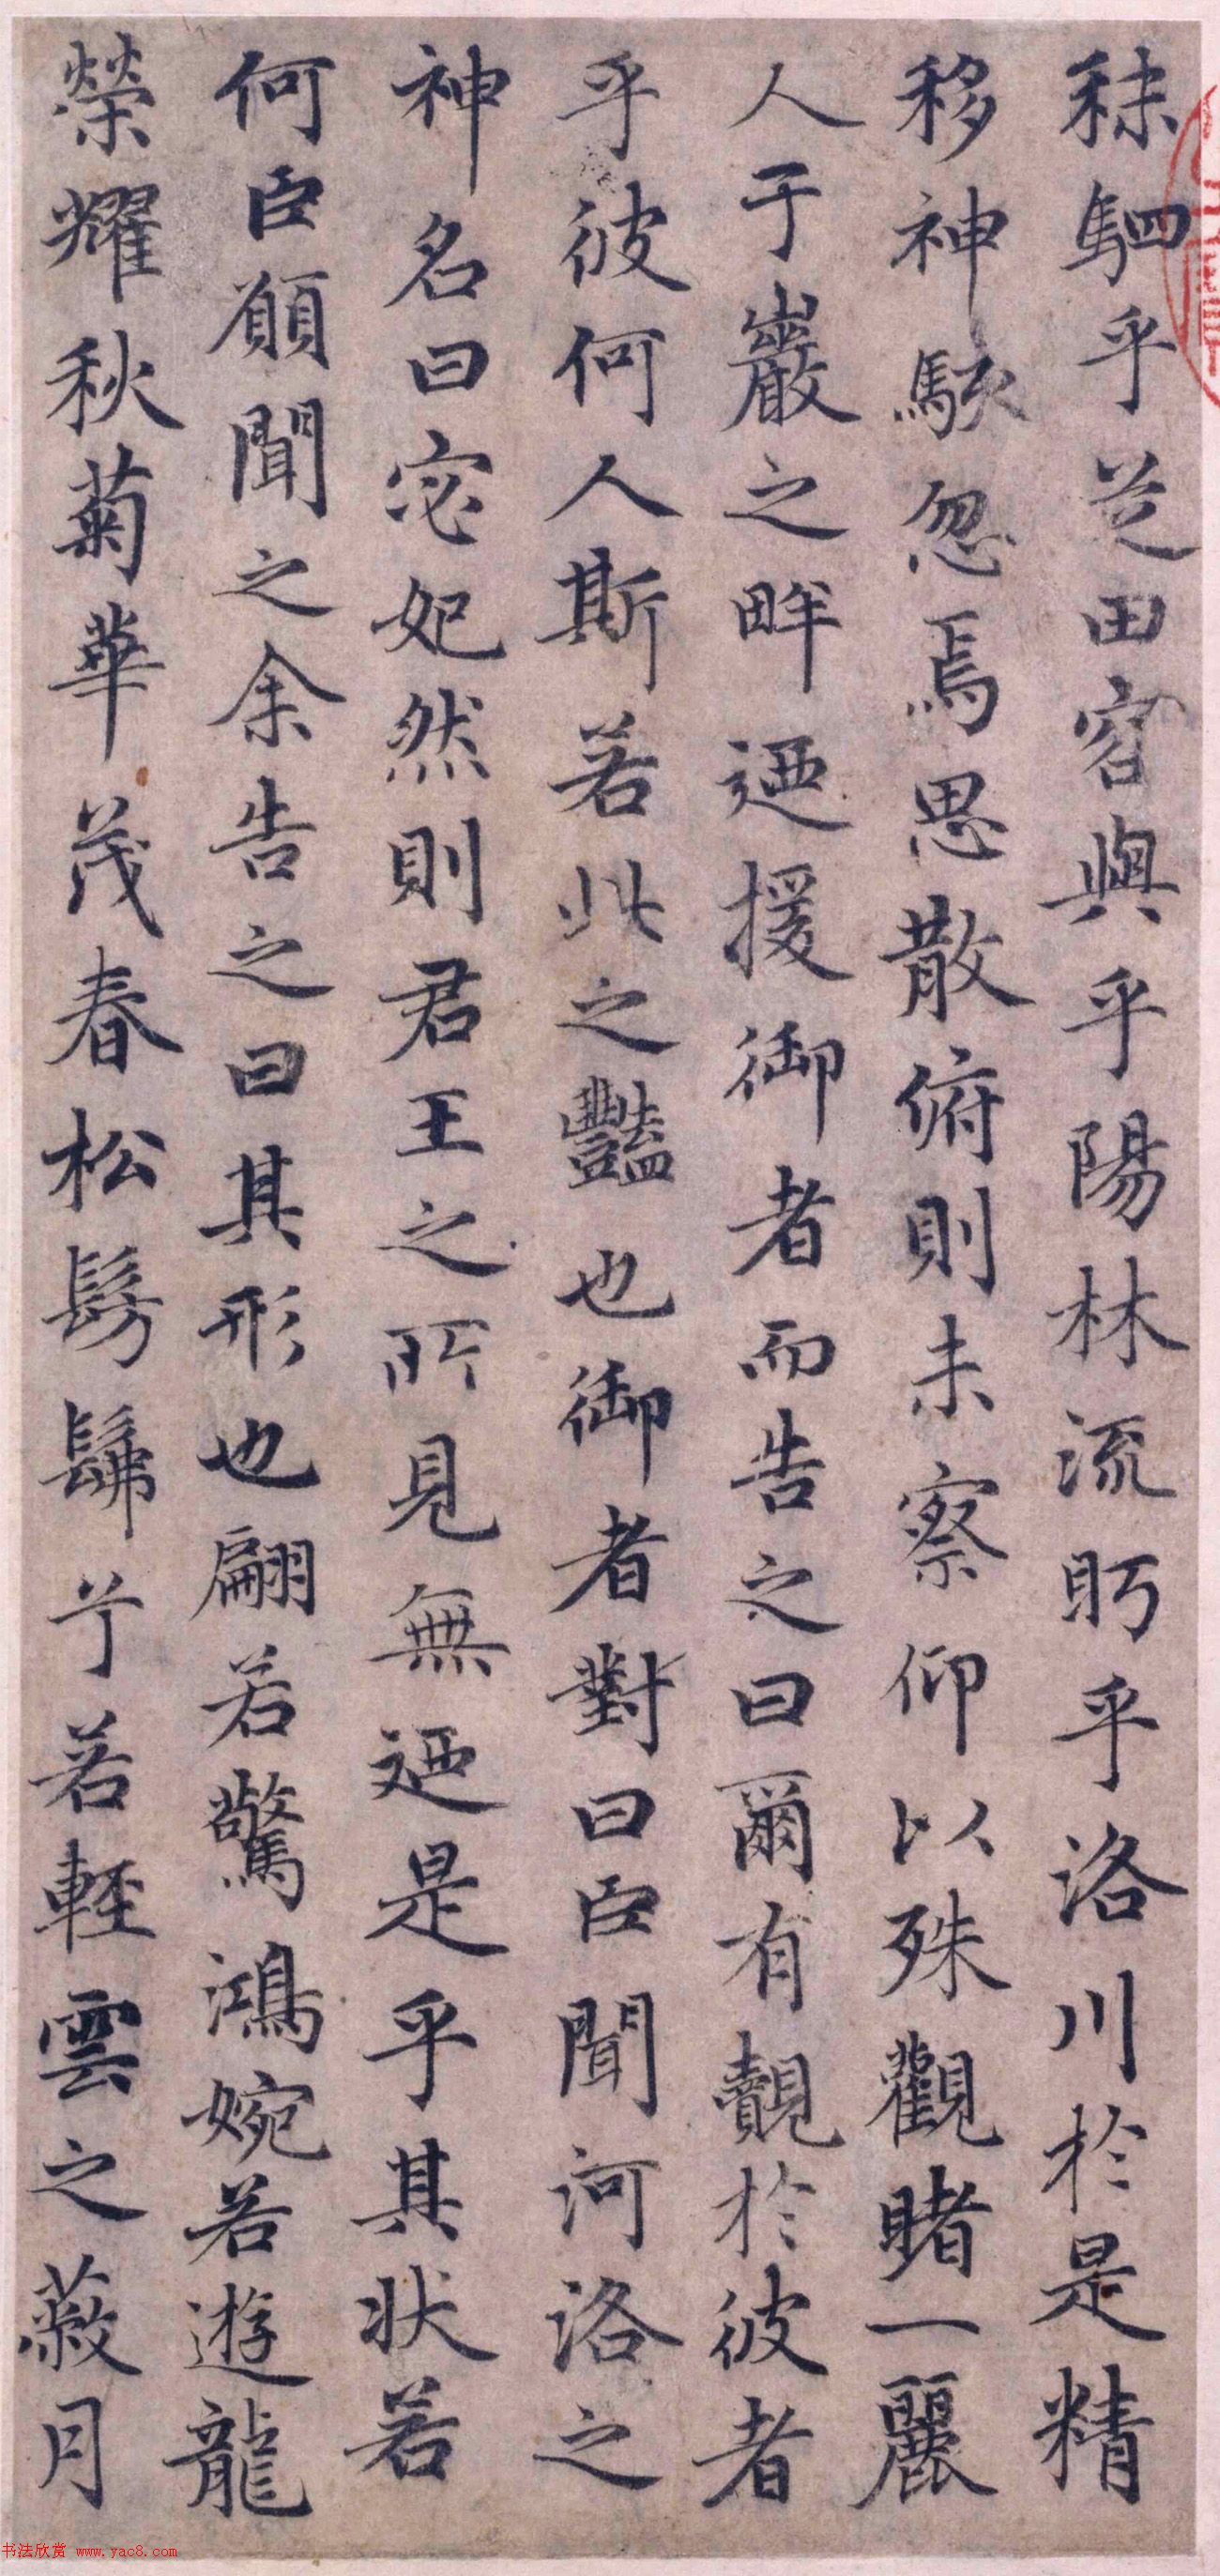 秣駟乎芝田容與乎陽林流眄乎洛川於是精
移神駭忽焉思散俯則未察仰以殊觀睹一麗
人于巖之畔迺援御者而告之曰爾有覿於彼者
乎彼何人斯若此之豔也御者對曰臣聞河洛之
神名曰宓妃然則君王之所見無迺是乎其狀若
何臣願聞之余告之曰其形也翩若驚鴻婉若遊龍
榮耀秋菊華茂春松髣髴兮若輕雲之蔽月
书法欣赏 www.yac8.com